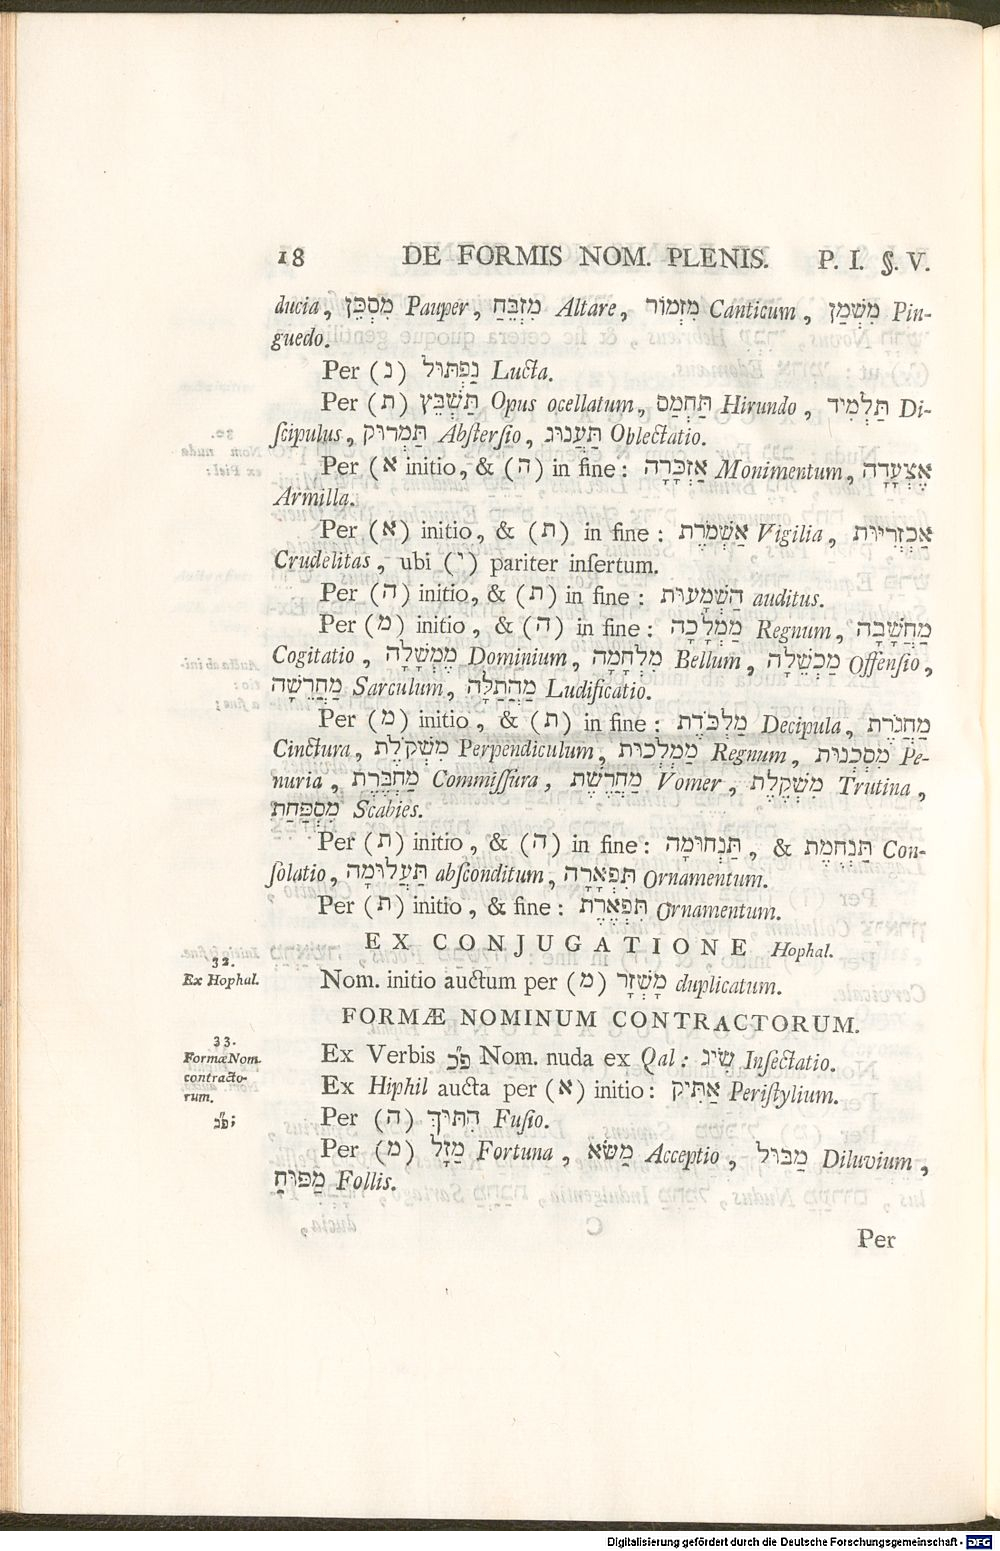 18 DE FORMIS NOM. PLENIS. P. I. §. V.
ducia, מִסְכֵּן Pauper, מִזְבֵּחַ Altare, מִזְמוֹר Canticum, מִשְׁמַן Pin-
guedo.
Per (נ) נַפְתּוּל Lucta.
Per (ת) תַּשְׁבֵּץ Opus ocellatum, תַּחְמָס Hirundo, תַּלְמִיד Di-
ſcipulus, תַּמְרוּק Abſterſio, תַּעֲנוּג Oblectatio.
Per (א initio, & (ה) in fine: אַזְכָּרָה Monimentum, אֶצְעָדָה
Armilla.
Per (א) initio, & (ת) in fine: אַשְׁמֹרֶת Vigilia, אַכְזְרִיּוּת
Crudelitas, ubi (י) pariter inſertum.
Per (ה) initio, & (ת) in fine: הַשְׁמָעוּת auditus.
Per (מ) initio, & (ה) in fine: מַמְלָכָה Regnum, מַחֲשָׁבָה
Cogitatio, מֶמְשָׁלָה Dominium, מִלְחָמָה Bellum, מַכְשֵׁלָה Offenſio,
מַחֲרֵשָׁה Sarculum, מַהֲתַלָּה Ludificatio.
Per (מ) initio, & (ת) in fine: מַלְכֹּדֶת Decipula, מַחֲגֹרֶת
Cinctura, מִשְׁקֹלֶת Perpendiculum, מַמְלְכוּת Regnum, מִסְכְּנוּת Pe-
nuria, מַחְבֶּרֶת Commiſſura, מַחֲרֶשֶׁת Vomer, מִשְׁקֶלֶת Trutina,
מִסְפַּחַת Scabies.
Per (ת) initio, & (ה) in fine: תַּנְחוּמָה, & תַּנְחֻמֶת Con-
ſolatio, תַּעֲלוּמָה abſconditum, תִּפְאָרָה Ornamentum.
Per (ת) initio, & fine: תִּפְאֶרֶת Ornamentum.
EX CONJUGATIONE Hophal.
32.
Ex Hophal.
Nom. initio auctum per (מ) מָשְׁזָר duplicatum.
FORMÆ NOMINUM CONTRACTORUM.
33.
Formæ Nom.
contracto-
rum.
פ״נ;
Ex Verbis פ״נ Nom. nuda ex Qal: שִׂיג Inſectatio.
Ex Hiphil aucta per (א) initio: אַתִּיק Periſtylium.
Per (ה) הִתּוּךְ Fuſio.
Per (מ) מַזָּל Fortuna, מַשֹּׂא Acceptio, מַבּוּל Diluvium,
מַפּוּחַ Follis.
Per